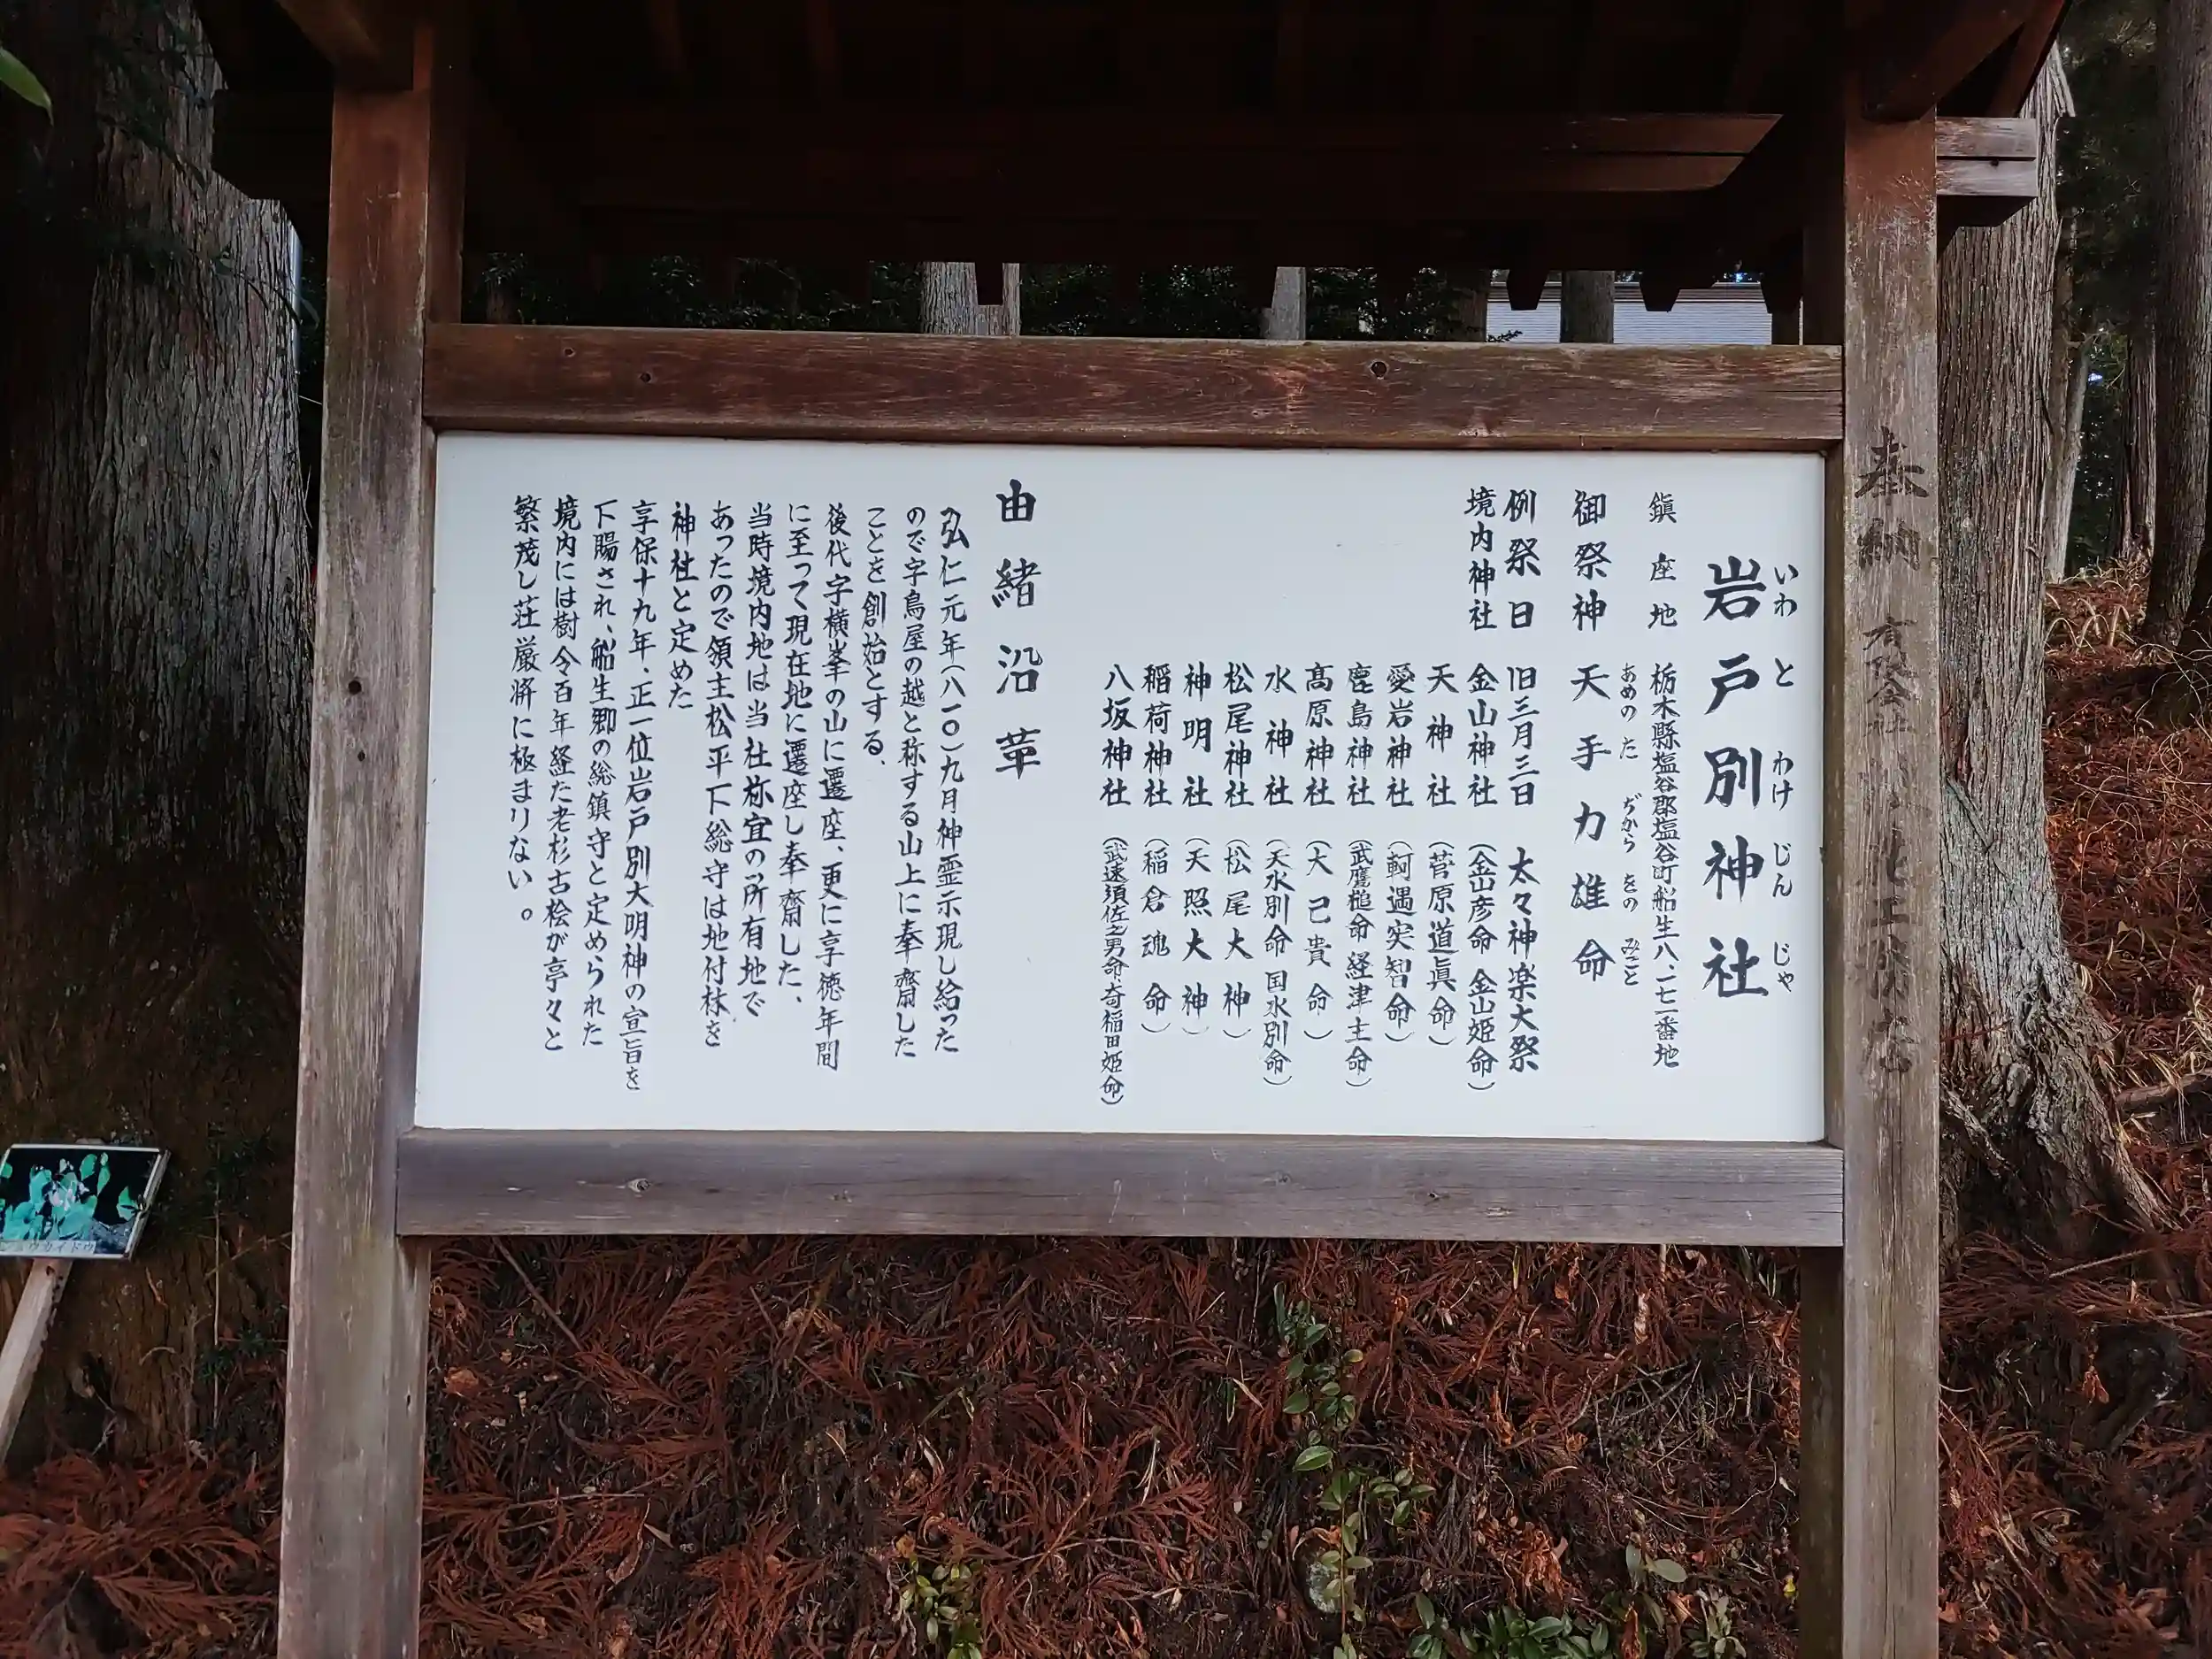 岩戸別神社
いわ と わけ じん じゃ
鎭座地 栃木縣塩谷郡塩谷町船生八、一七一番地
御祭神 天手力雄命
あめの た ぢから をの みこと
例祭日 旧三月三日 太々神楽大祭
境内神社 金山神社 (金山彦命 金山姫命)
天神社 (菅原道眞命)
愛岩神社 (軻遇突智命)
鹿島神社 (武甕槌命 経津主命)
高原神社 (大己貴命)
水神社 (天水別命 国水別命)
松尾神社 (松尾大神)
神明社 (天照大神)
稲荷神社 (稲倉魂命)
八坂神社 (武速須佐之男命・奇稲田姫命)
由緒沿革
弘仁元年(八一〇)九月神霊示現し給った
ので字鳥屋の越と称する山上に奉齋した
ことを創始とする、
後代字横峯の山に遷座、更に享徳年間
に至って現在地に遷座し奉齋した、
当時境内地は当社祢宜の所有地で
あったので領主松平下総守は地付林を
神社と定めた
享保十九年、正一位岩戸別大明神の宣旨を
下賜され、船生郷の総鎮守と定められた
境内には樹令百年経た老杉古桧が亭々と
繁茂し荘厳将に極まりない。
奉納 有限会社